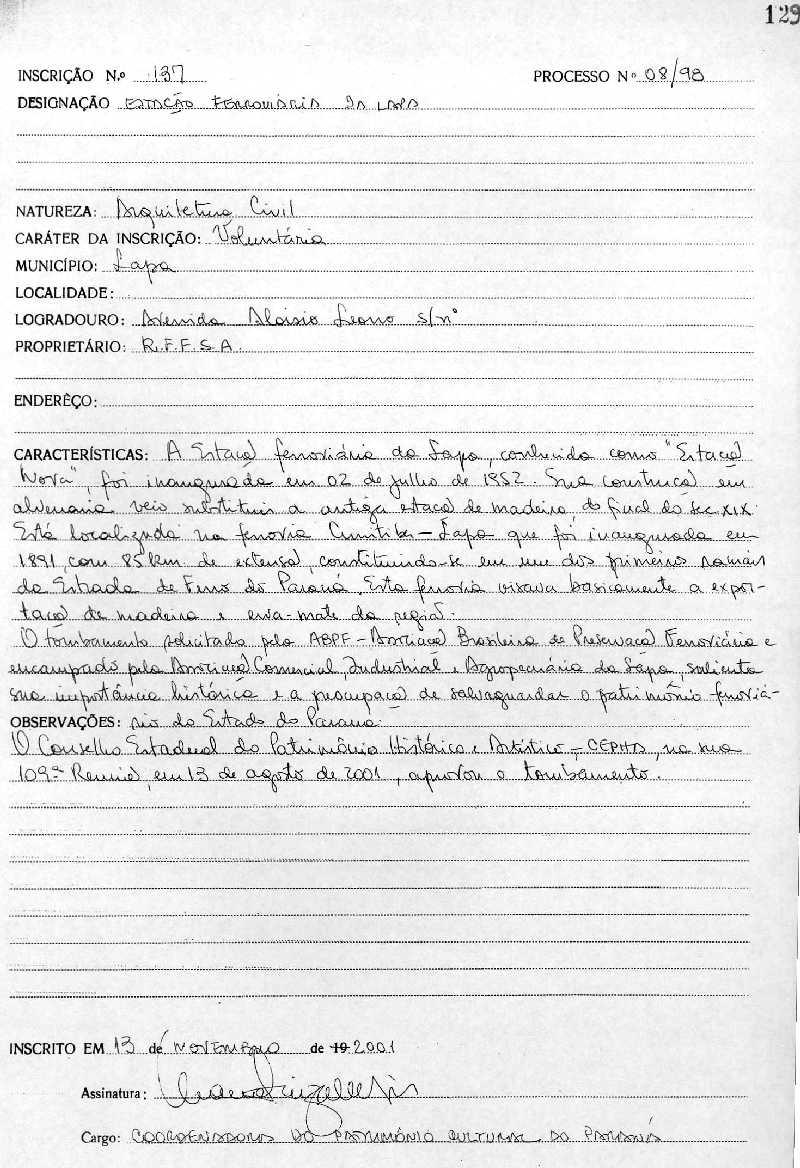 129
INSCRIÇÃO N.º 137 PROCESSO Nº 08/98
DESIGNAÇÃO ESTAÇÃO FERROVIÁRIA DA LAPA
NATUREZA: Arquitetura Civil
CARÁTER DA INSCRIÇÃO: Voluntária
MUNICÍPIO: Lapa
LOCALIDADE:
LOGRADOURO: Avenida Aloisio Leoni s/nº
PROPRIETÁRIO: R.F.F.S.A.
ENDERÊÇO:
CARACTERÍSTICAS: A Estação ferroviária da Lapa, conhecida como "Estação
Nova", foi inaugurada em 02 de julho de 1952. Sua construção em
alvenaria veio substituir a antiga estação de madeira, do final do séc. XIX.
Está localizada na ferrovia Curitiba-Lapa que foi inaugurada em
1891, com 85 km. de extensão, constituindo-se em um dos primeiros ramais
da Estrada de Ferro do Paraná. Esta ferrovia visava basicamente a expor-
tação de madeira e erva-mate da região.
O tombamento solicitado pela ABPF - Associação Brasileira de Preservação Ferroviária e
encampado pela Associação Comercial, Industrial e Agropecuária da Lapa, salienta
sua importância histórica e a preocupação de salvaguardar o patrimônio ferroviá-
OBSERVAÇÕES: rio do Estado do Paraná.
O Conselho Estadual do Patrimônio Histórico e Artístico - CEPHA, na sua
109ª Reunião, em 13 de agosto de 2001, aprovou o tombamento.
INSCRITO EM 13 de NOVEMBRO de 19 2001
Assinatura:
Cargo: COORDENADORA DO PATRIMÔNIO CULTURAL DO PARANÁ